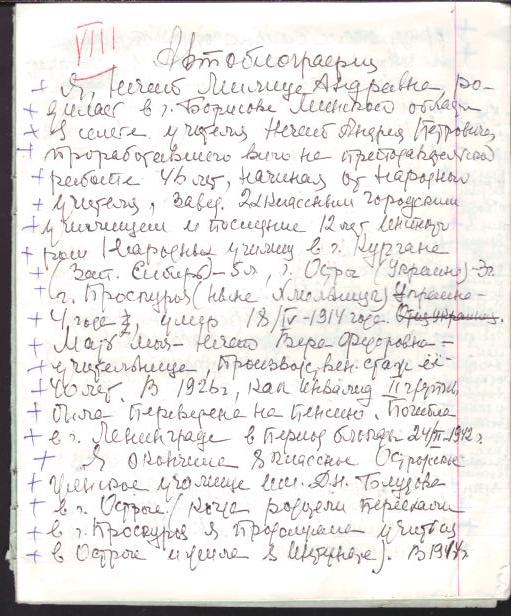 VIII
Автобиография
Я, Нечай Милица Андреевна, ро-
дилась в г. Борисове Минской области
в семье учителя Нечай Андрея Петровича,
проработавшего всего на преподавательской
работе 46 лет, начиная от народного
учителя, завед. 2х классным городским
училищем и последние 12 лет
народных училищ в г. Кургане
(Зап. Сибирь) - 5 л, г. Остра (Украина) - 3г.
г. Проскуров (ныне Хмельницк) Украина -
4 года, умер 18/IV - 1914 года.
Мать моя - Нечай Вера Федоровна -
учительница, производствен. стаж её
40 лет. В 1926 г, как инвалид II группы,
была переведена на пенсию. Погибла
в г. Ленинграде в период блокады 24/II-1942 г
Я окончила 8 классное Острожское
женское училище им. Д.Н. Блудова
в г. Остроге (когда родители переехали
в г. Проскуров я продолжала учиться
в Остроге и жила в интернате). В